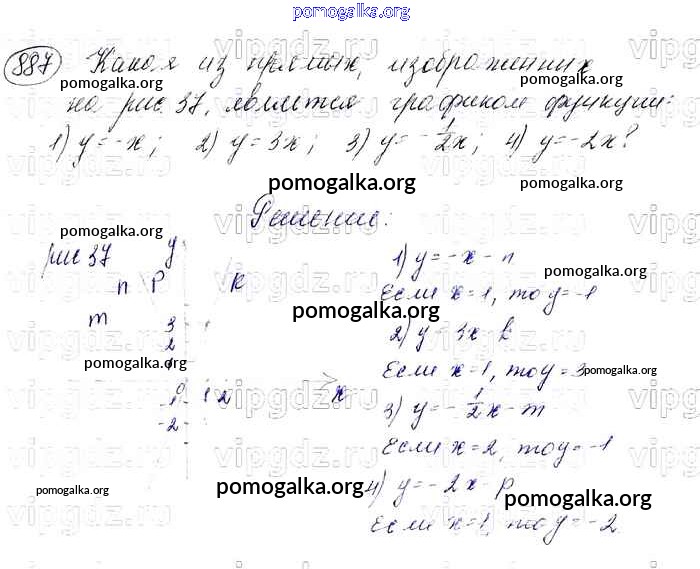 pomogalka.org
887 Какая из прямых, изображенных
pomogalka.org pomogalka.org
на рис. 37, является графиком функции:
1) y=-x; 2) y=3x; 3) y=-1/2x; 4) y=-2x?
pomogalka.org pomogalka.org
pomogalka.org
Решение:
pomogalka.org
рис 37 y
n p k
m
3
2
1
0 1 2 x
-1
-2
pomogalka.org
pomogalka.org
1) y=-x - n
pomogalka.org
Если x=1, то y=-1
pomogalka.org
2) y=3x k
Если x=1, то y=3
pomogalka.org
3) y=-1/2x - m
Если x=2, то y=-1
4) y=-2x - p
pomogalka.org pomogalka.org
pomogalka.org
Если x=1, то y=-2
vipgdz.ru